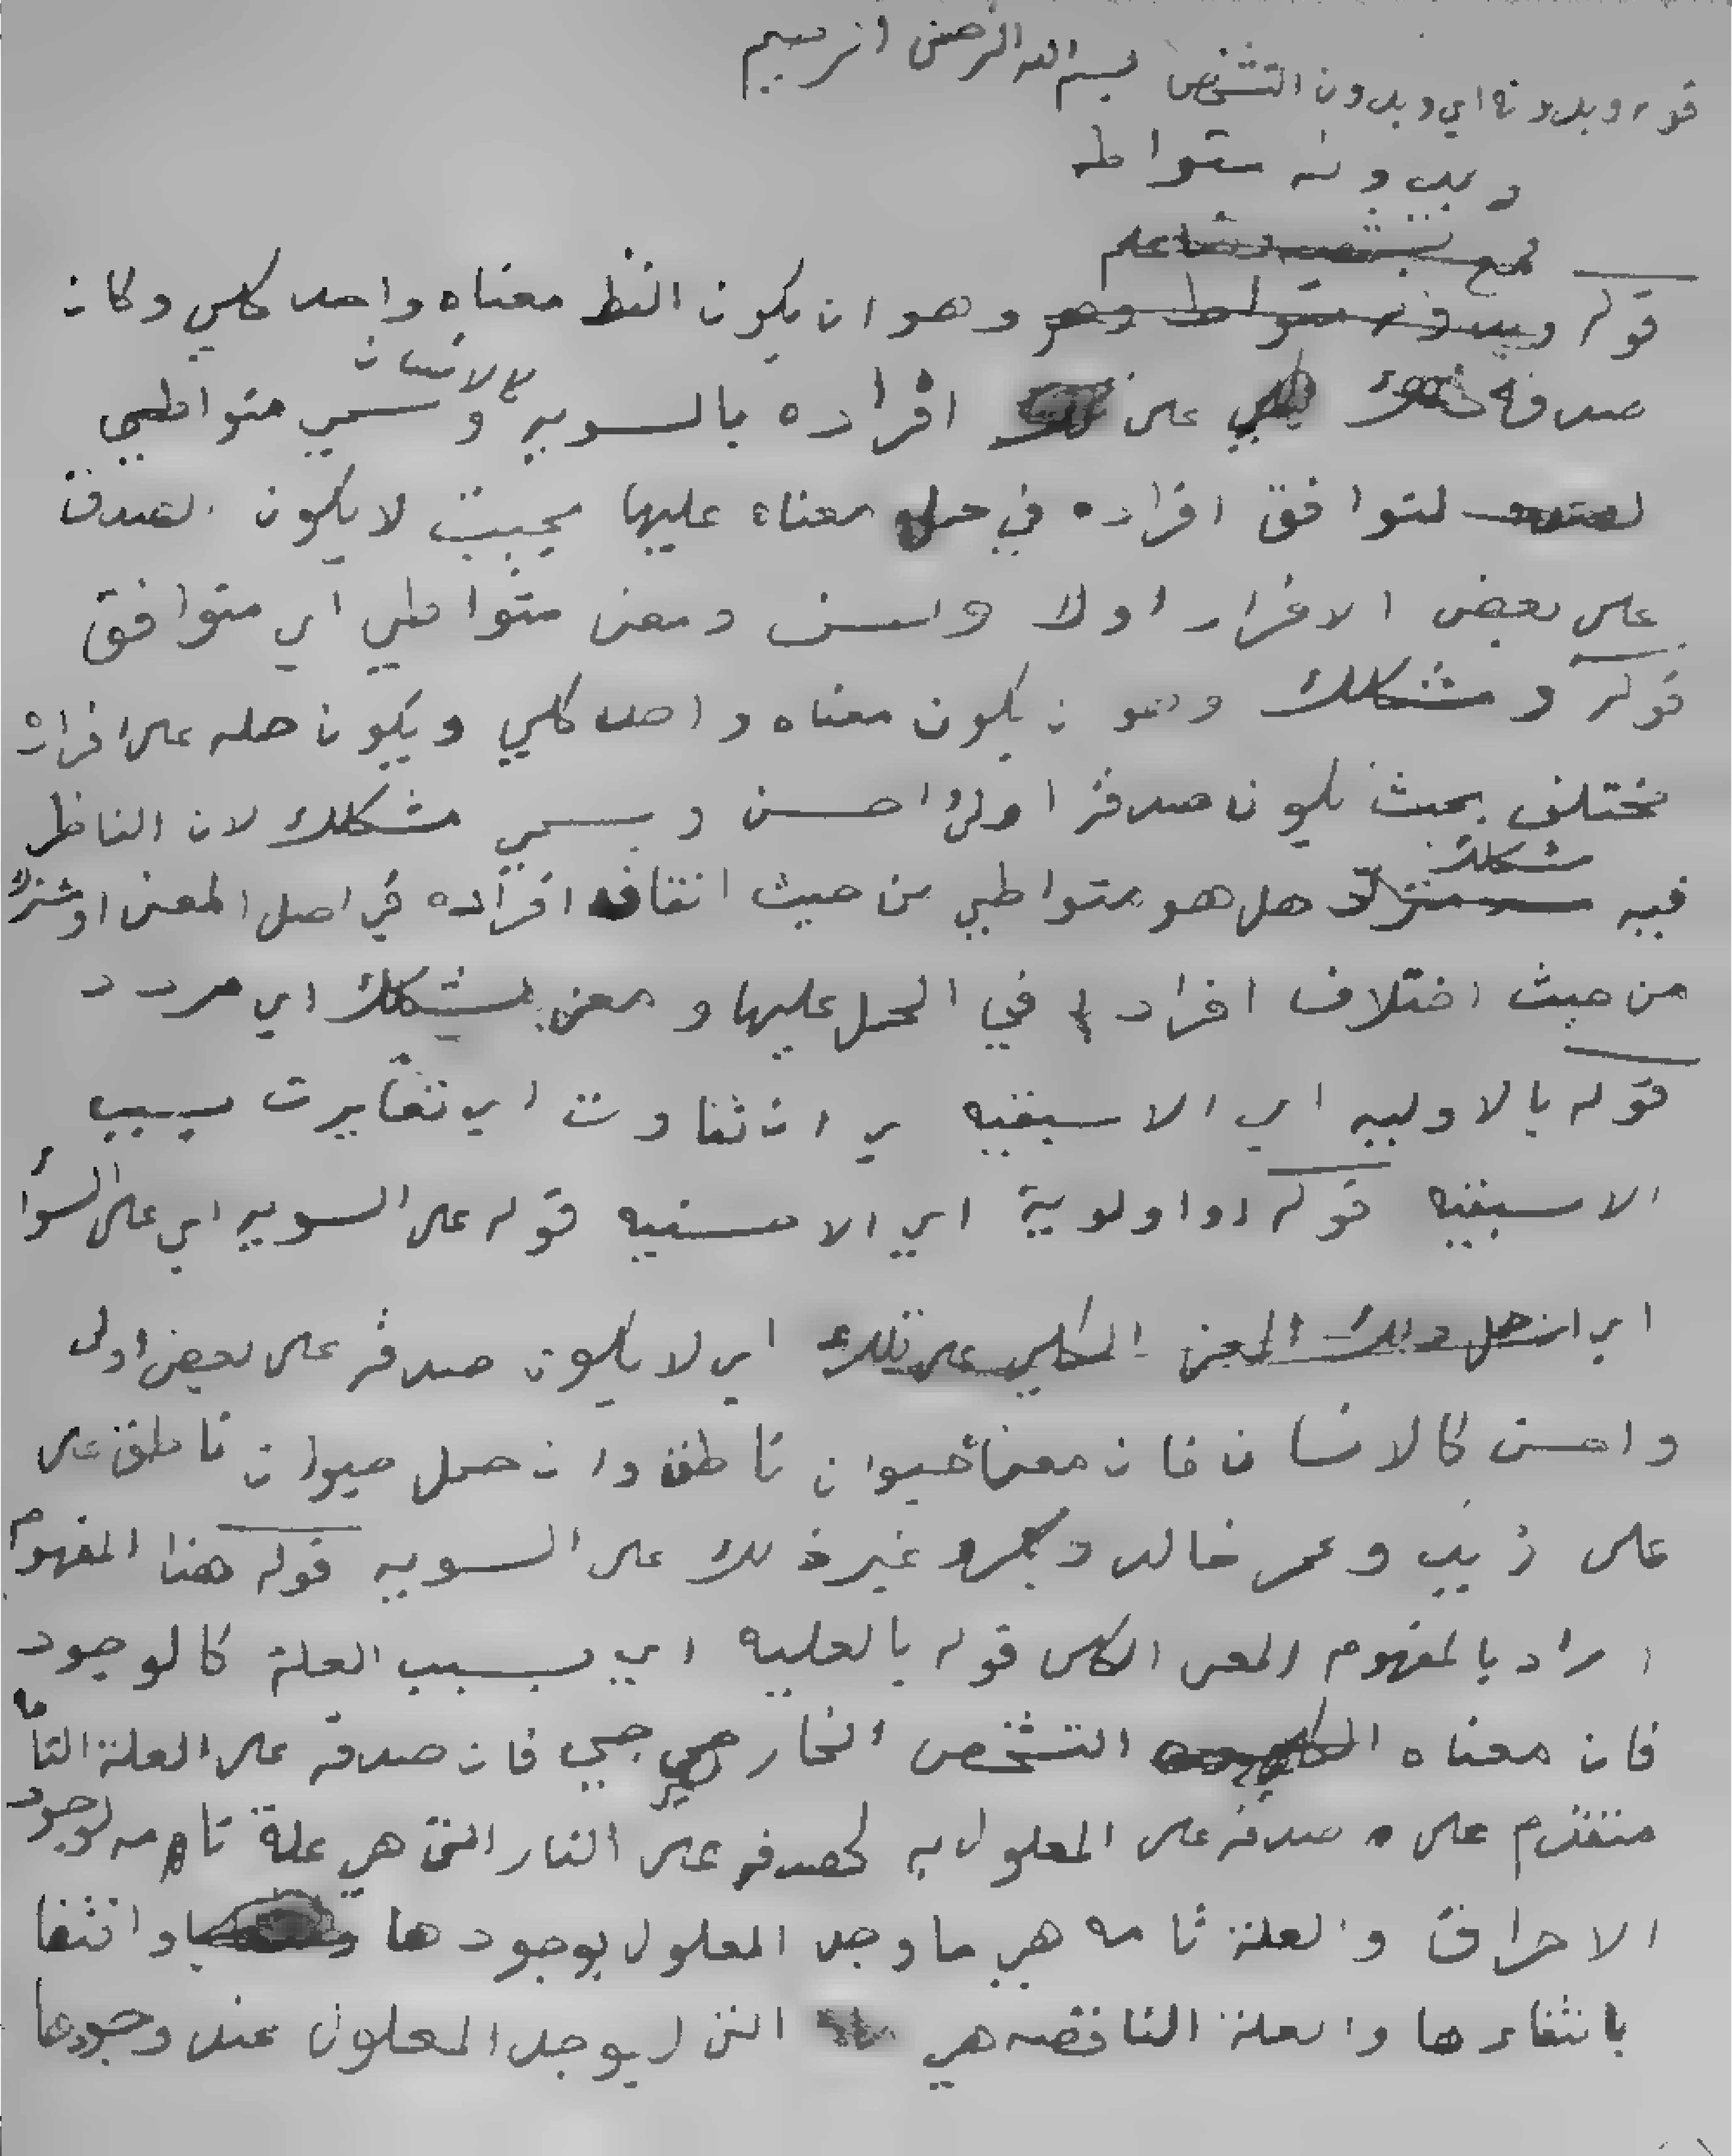 بسم الله الرحمن الرحيم
قوله وبدونه اي وبدون التشخص
وبدونه متواطه
قوله وهو ان يكون الفظ معناه واحد كلي وكان
صدقه على افراده بالسويه كالانسان وسمي متواطيي
لتوافق افراده في حمل معناه عليها بحيث لا يكون الصدق
على بعض الافراد اولا واحسن ومعنى متواطي اي متوافق
قوله ومشكك وهو ن يكون معناه واحد كلي ويكون حمله على افراده
مختلف بحيث يكون صدقه اولى احسن ويسمي مشكك لان الناظر
فيه شكك هل هو متواطي من حيث اتفاقه افراده في اصل المعنى او مشترك
من حيث اختلاف افراده في الحمل عليها ومعنى مشكك اي مردد
قوله بالاوليه اي الاسبقيه ي ان تفاوت اي تغايرت بسبب
الاسبقيه قوله اواولوية اي الاحسنيه قوله على السويه اي على السوا
اي لا يكون صدقه على بعض اولى
واحسن كالانسان فان معناه حيوان ناطق وان حمل حيوان ناطق على
على زيد وعمر خالد وبكر وغير ذلك على السويه قوله هذا المفهوم
اراد بالمفهوم المعنى الكلي قوله بالعليه اي بسبب العلة كالوجود
فان معناه التشخص الخارجي فان صدقه على العلة التا
متقدم على صدقه على المعلول به كصدقه على النار التي هي علة تامه لوجود
الاحراق والعلة تامه هي ما وجد المعلول بوجودها وانتفا
بانتفاءها والعلة الناقصه هي التي لا يوجد المعلول عند وجودها